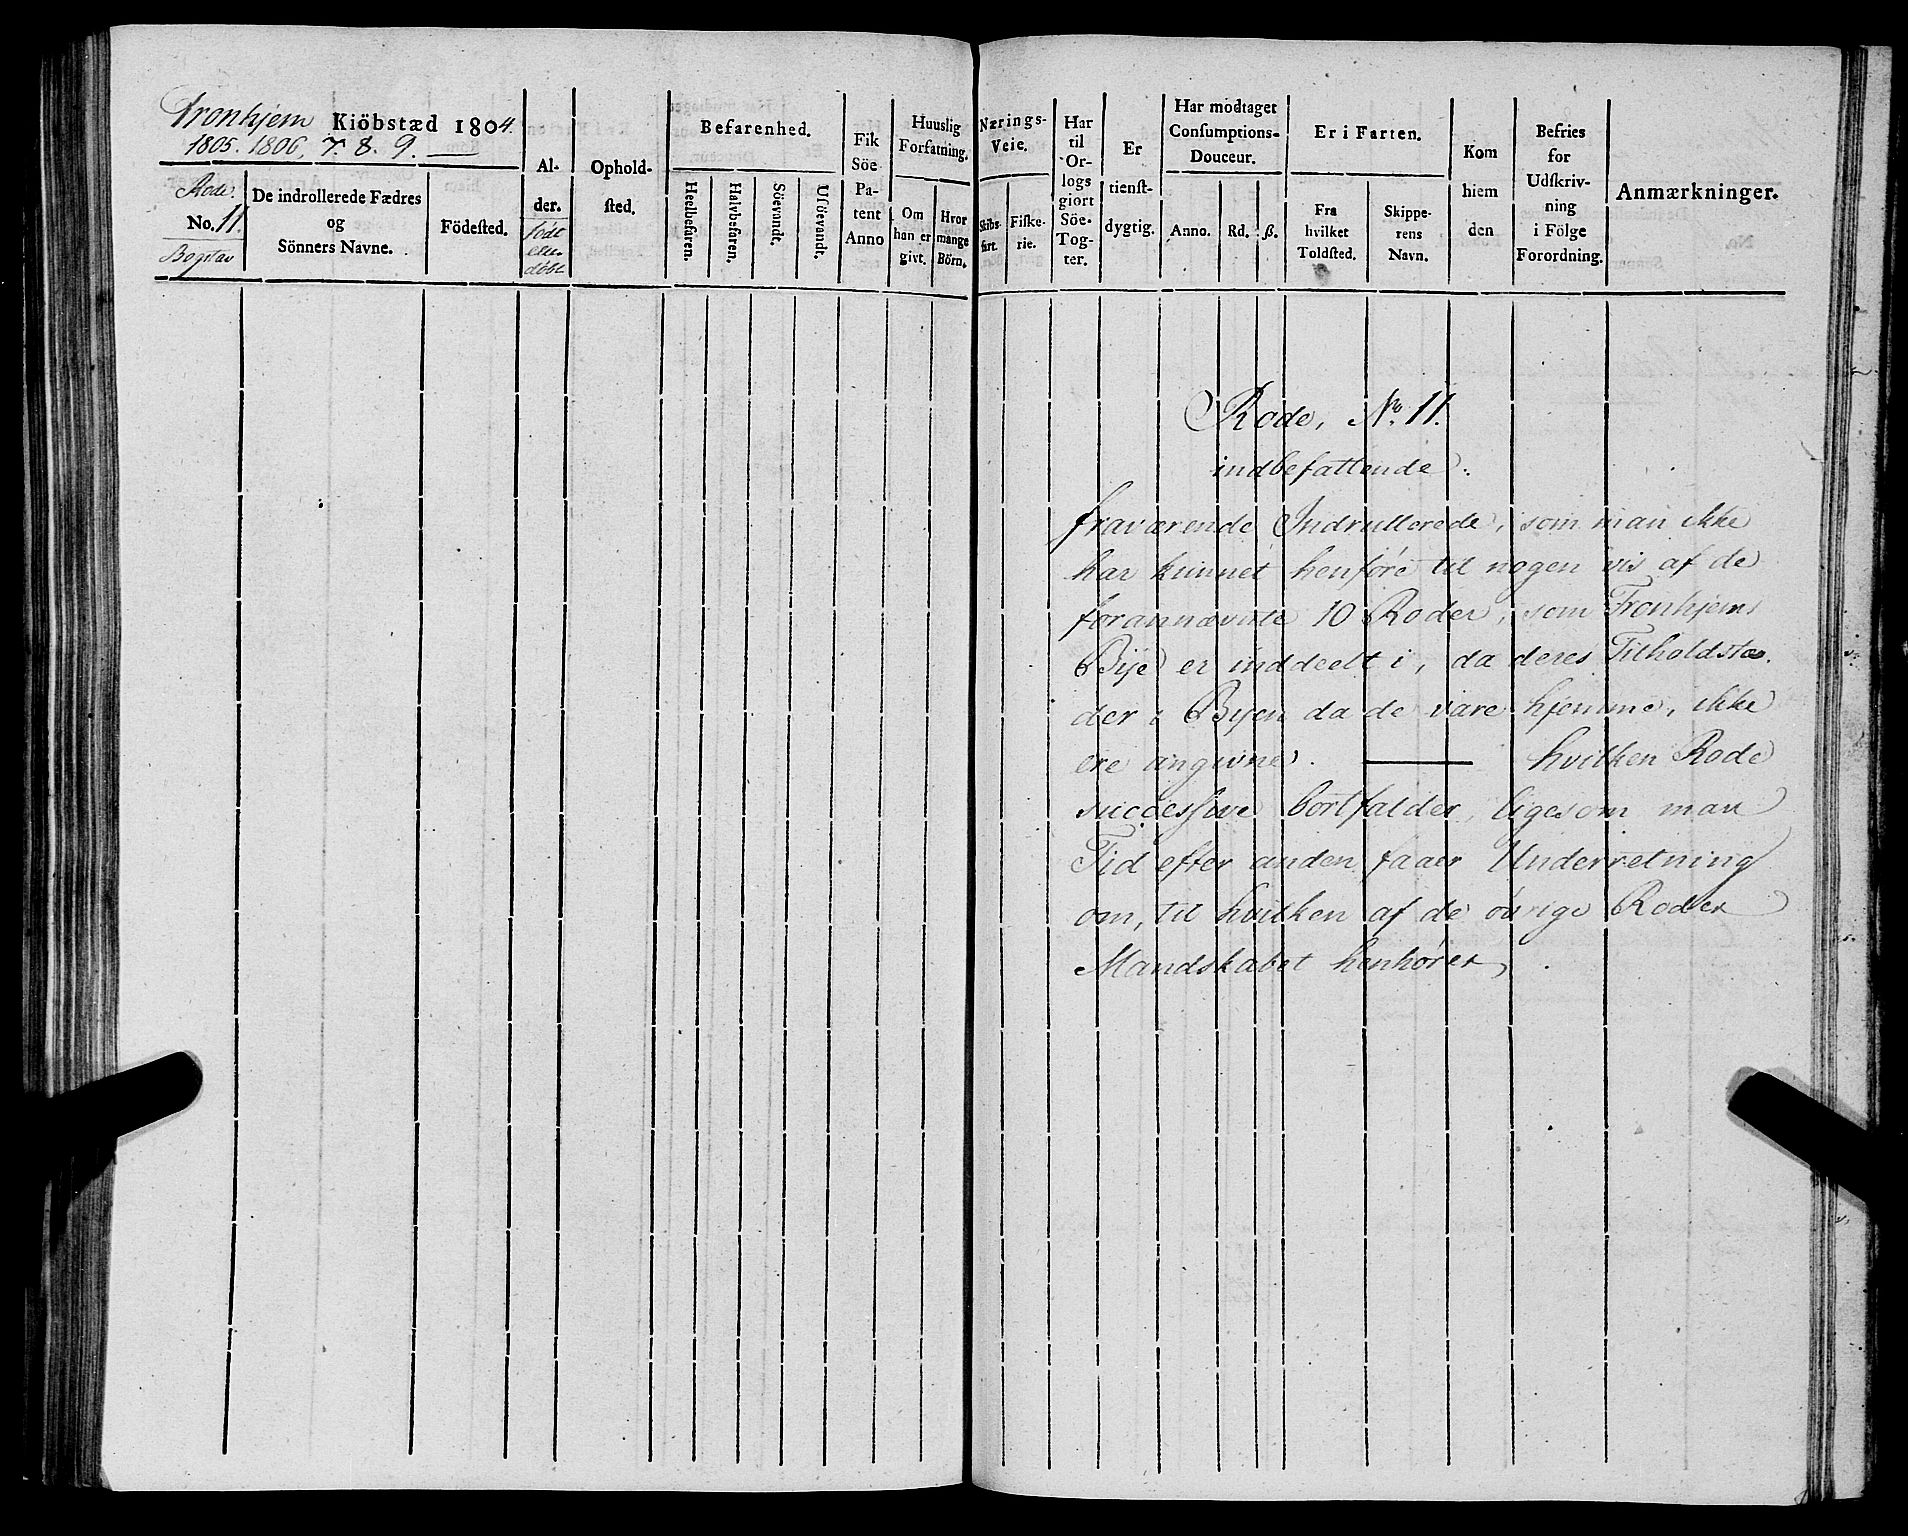 Tronhjem Kiöbstæd 1804.
1805. 1806, 7. 8. 9. —
Rode.
No. 11.
Bogstav
De indrollerede Fædres
og
Sönners Navne.
Födested.
Al-
der.
födt
eller
döbt
Ophold-
sted.
Befarenhed.
Heelbefaren.
Halvbefaren.
Söevandt.
Usöevandt.
Fik
Söe
Pa-
tent
Anno
Huuslig
Forfatning.
Om
han er
givt.
Hvor
mange
Börn.
Nærings-
Veie.
Skibs-
fart.
Fiske-
rie.
Har
til
Or-
logs
giort
Söe-
Tog-
ter.
Er
tienst-
dygtig.
Har modtaget
Consumptions-
Douceur.
Anno.
Rd.
ß.
Er i Farten.
Fra
hvilket
Toldsted.
Skippe-
rens
Navn.
Kom
hiem
den
Befries
for
Udskriv-
ning
i Fölge
Forordning.
Anmærkninger.
Rode, No. 11.
indbefattende.
fraværende Indrullerede, som man ikke
har kunnet henføre til nogen vis af de
forannævnte 10 Roder, som Tronhjems
Bye er inddeelt i, da deres Tilholdstæ-
der i Byen da de vare hjemme, ikke
ere angivne. — hvilken Rode
successive bortfalder, ligesom man
Tid efter anden faaer Underretning
om, til hvilken af de øvrige Roder
Mandskabet henhører,